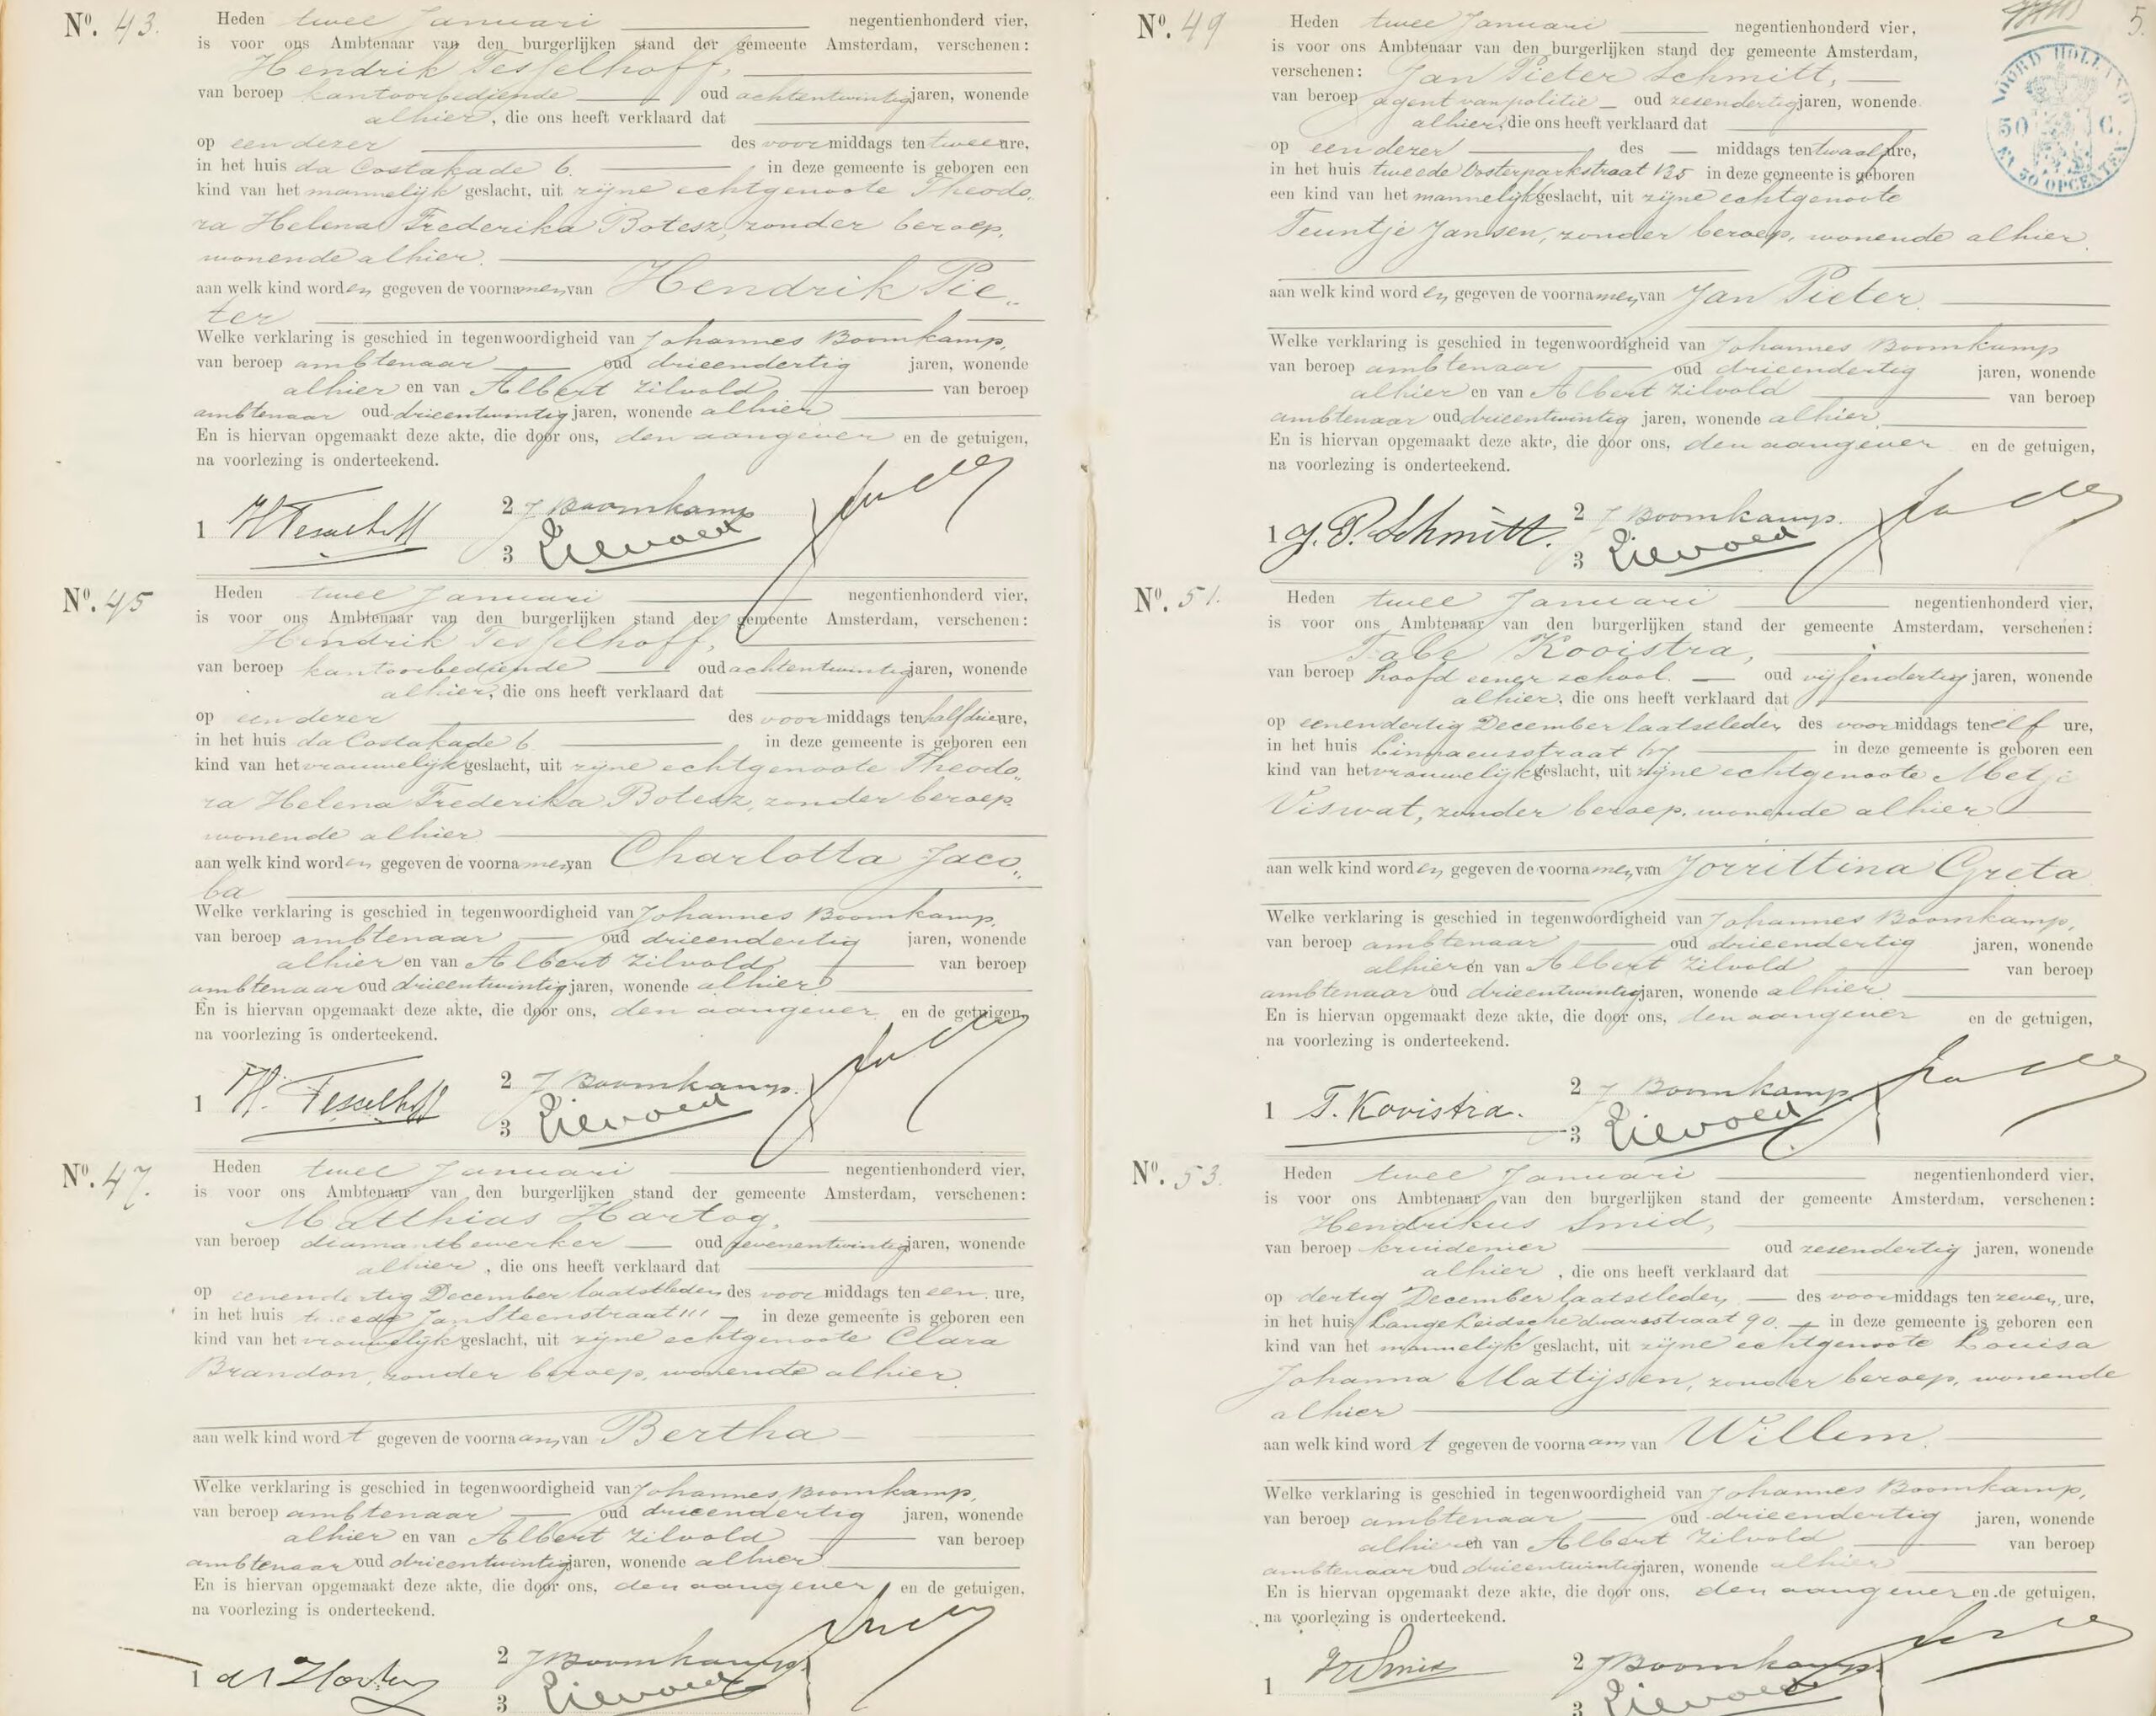 No. 43.
Heden twee Januari negentienhonderd vier,
is voor ons Ambtenaar van den burgerlijken stand der gemeente Amsterdam, verschenen:
Hendrik Tesselhoff,
van beroep kantoorbediende oud achtentwintig jaren, wonende
alhier, die ons heeft verklaard dat
op een dezer des voormiddags ten twee ure,
in het huis da Costakade 6. in deze gemeente is geboren een
kind van het mannelijk geslacht, uit zijne echtgenoote Theodo„
ra Helena Frederika Botesz, zonder beroep,
wonende alhier.
aan welk kind worden gegeven de voornamen van Hendrik Pie„
ter
Welke verklaring is geschied in tegenwoordigheid van Johannes Boomkamp,
van beroep ambtenaar oud drieendertig jaren, wonende
alhier en van Albert Zilvold van beroep
ambtenaar oud drieentwintig jaren, wonende alhier
En is hiervan opgemaakt deze akte, die door ons, den aangever en de getuigen,
na voorlezing is onderteekend.
1 H Tesselhoff 2 J Boomkamp
3 Zilvold
No. 45
Heden twee Januari negentienhonderd vier,
is voor ons Ambtenaar van den burgerlijken stand der gemeente Amsterdam, verschenen:
Hendrik Tesselhoff,
van beroep kantoorbediende oud achtentwintig jaren, wonende
alhier, die ons heeft verklaard dat
op een dezer des voormiddags ten half drie ure,
in het huis da Costakade 6 in deze gemeente is geboren een
kind van het vrouwelijk geslacht, uit zijne echtgenoote Theodo„
ra Helena Frederika Botesz, zonder beroep
wonende alhier
aan welk kind worden gegeven de voornamen van Charlotta Jaco„
ba
Welke verklaring is geschied in tegenwoordigheid van Johannes Boomkamp,
van beroep ambtenaar oud drieendertig jaren, wonende
alhier en van Albert Zilvold van beroep
ambtenaar oud drieentwintig jaren, wonende alhier
En is hiervan opgemaakt deze akte, die door ons, den aangever en de getuigen,
na voorlezing is onderteekend.
1 H. Tesselhoff 2 J Boomkamp.
3 Zilvold
No. 47.
Heden twee Januari negentienhonderd vier,
is voor ons Ambtenaar van den burgerlijken stand der gemeente Amsterdam, verschenen:
Matthias Hartog,
van beroep diamantbewerker oud zevenentwintig jaren, wonende
alhier, die ons heeft verklaard dat
op eenendertig December laatstleden des voormiddags ten een ure,
in het huis tweede Jan Steenstraat 111 in deze gemeente is geboren een
kind van het vrouwelijk geslacht, uit zijne echtgenoote Clara
Brandon, zonder beroep, wonende alhier
aan welk kind wordt gegeven de voornaam van Bertha
Welke verklaring is geschied in tegenwoordigheid van Johannes Boomkamp,
van beroep ambtenaar oud drieendertig jaren, wonende
alhier en van Albert Zilvold van beroep
ambtenaar oud drieentwintig jaren, wonende alhier
En is hiervan opgemaakt deze akte, die door ons, den aangever en de getuigen,
na voorlezing is onderteekend.
1 M Hartog 2 J Boomkamp
3 Zilvold
5.
NOORD HOLLAND
50 C.
EN 50 OPCENTEN
No. 49
Heden twee Januari negentienhonderd vier,
is voor ons Ambtenaar van den burgerlijken stand der gemeente Amsterdam,
verschenen: Jan Pieter Schmitt,
van beroep agent van politie oud zesendertig jaren, wonende
alhier, die ons heeft verklaard dat
op een dezer des middags ten twaalf ure,
in het huis tweede Oosterparkstraat 125 in deze gemeente is geboren
een kind van het mannelijk geslacht, uit zijne echtgenoote
Teuntje Jansen, zonder beroep, wonende alhier
aan welk kind worden gegeven de voornamen van Jan Pieter
Welke verklaring is geschied in tegenwoordigheid van Johannes Boomkamp
van beroep ambtenaar oud drieendertig jaren, wonende
alhier en van Albert Zilvold van beroep
ambtenaar oud drieentwintig jaren, wonende alhier
En is hiervan opgemaakt deze akte, die door ons, den aangever en de getuigen,
na voorlezing is onderteekend.
1 J. P. Schmitt. 2 J Boomkamp.
3 Zilvold
No. 51.
Heden twee Januari negentienhonderd vier,
is voor ons Ambtenaar van den burgerlijken stand der gemeente Amsterdam, verschenen:
Tabe Kooistra,
van beroep hoofd eener school. oud vijfendertig jaren, wonende
alhier, die ons heeft verklaard dat
op eenendertig December laatstleden des voormiddags ten elf ure,
in het huis Linnaeusstraat 67 in deze gemeente is geboren een
kind van het vrouwelijk geslacht, uit zijne echtgenoote Metje
Viswat, zonder beroep, wonende alhier
aan welk kind worden gegeven de voornamen van Jorrittina Greta
Welke verklaring is geschied in tegenwoordigheid van Johannes Boomkamp,
van beroep ambtenaar oud drieendertig jaren, wonende
alhier en van Albert Zilvold van beroep
ambtenaar oud drieentwintig jaren, wonende alhier
En is hiervan opgemaakt deze akte, die door ons, den aangever en de getuigen,
na voorlezing is onderteekend.
1 T. Kooistra. 2 J Boomkamp
3 Zilvold
No. 53.
Heden twee Januari negentienhonderd vier,
is voor ons Ambtenaar van den burgerlijken stand der gemeente Amsterdam, verschenen:
Hendrikus Smid,
van beroep kruidenier oud zesendertig jaren, wonende
alhier, die ons heeft verklaard dat
op dertig December laatstleden des voormiddags ten zeven ure,
in het huis Lange Leidschedwarsstraat 90. in deze gemeente is geboren een
kind van het mannelijk geslacht, uit zijne echtgenoote Louisa
Johanna Mattijsen, zonder beroep, wonende
alhier
aan welk kind wordt gegeven de voornaam van Willem.
Welke verklaring is geschied in tegenwoordigheid van Johannes Boomkamp,
van beroep ambtenaar oud drieendertig jaren, wonende
alhier en van Albert Zilvold van beroep
ambtenaar oud drieentwintig jaren, wonende alhier
En is hiervan opgemaakt deze akte, die door ons, den aangever en de getuigen,
na voorlezing is onderteekend.
1 H Smid 2 J Boomkamp
3 Zilvold